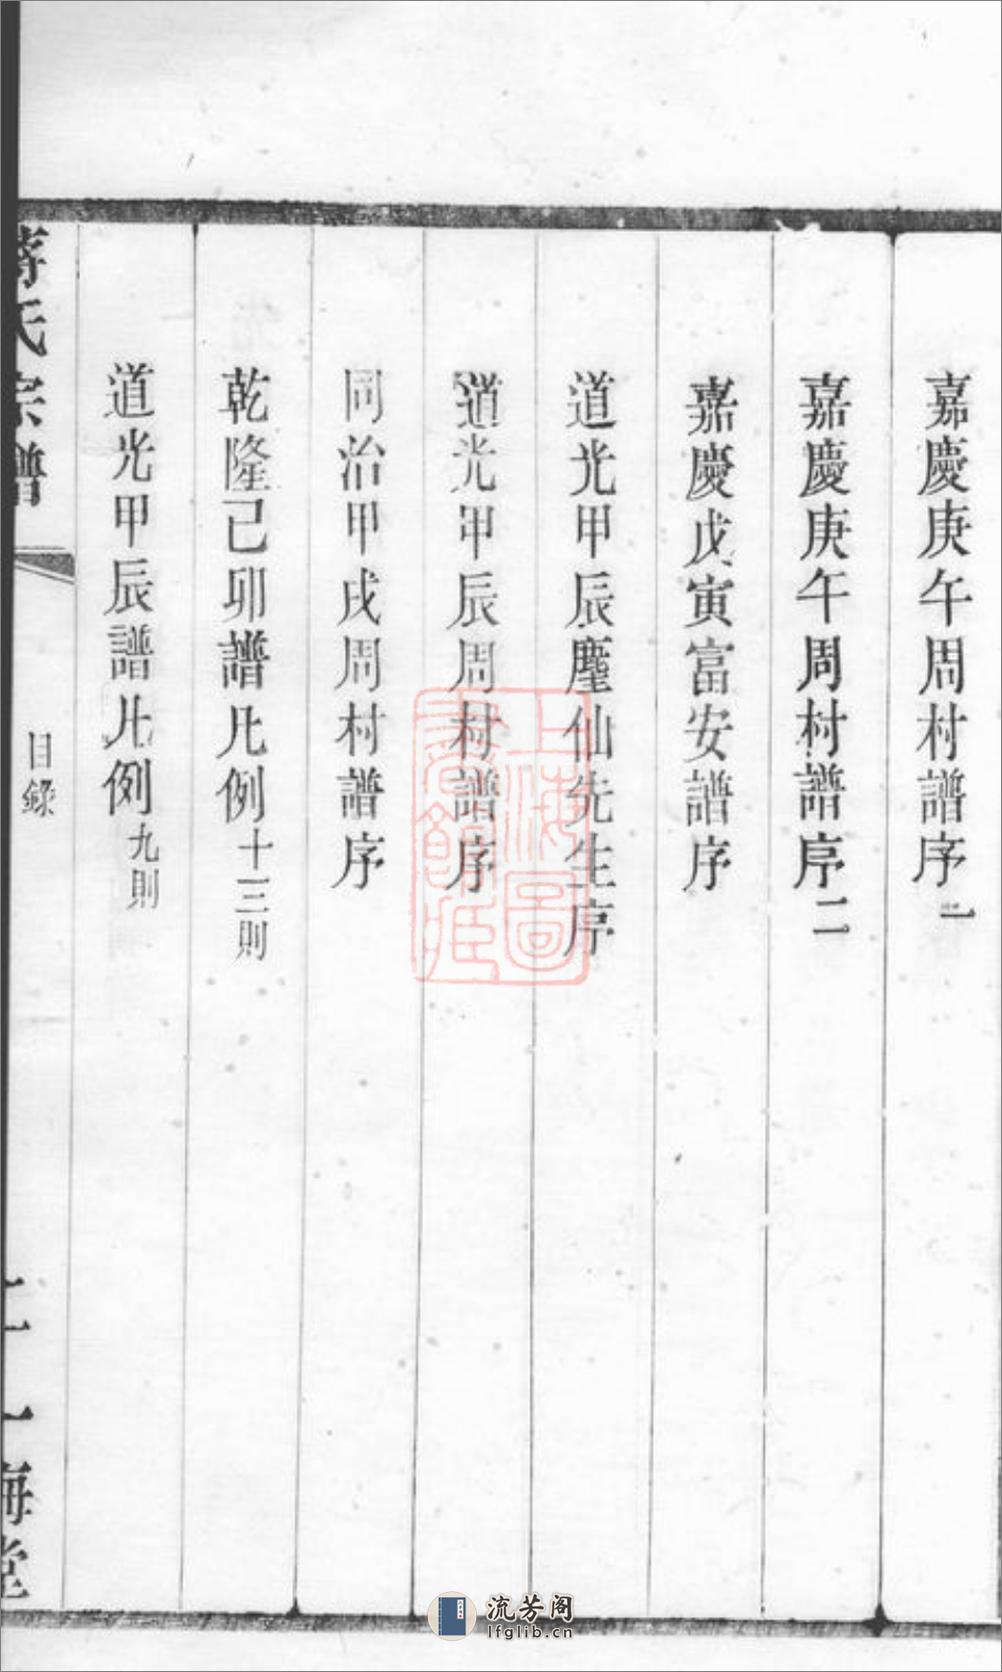 嘉慶庚午周村譜序一
嘉慶庚午周村譜序二
嘉慶戊寅富安譜序
道光甲辰塵仙先生序
道光甲辰周村譜序
同治甲戌周村譜序
乾隆己卯譜凡例十三則
道光甲辰譜凡例九則
蔣氏宗譜
目錄
二
一梅堂
上海圖書館藏
流芳阁
lfglib.cn